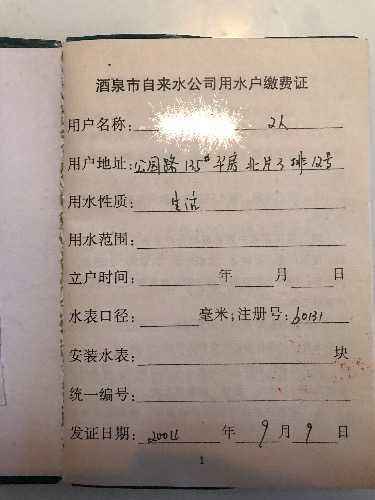 酒泉市自来水公司用水户缴费证
用户名称: 2人
用户地址:公园路135#平房北片3排12号
用水性质: 生活
用水范围:
立户时间: 年 月 日
水表口径: 毫米;注册号:60131
安装水表: 块
统一编号:
发证日期: 年 9 月 9 日
1